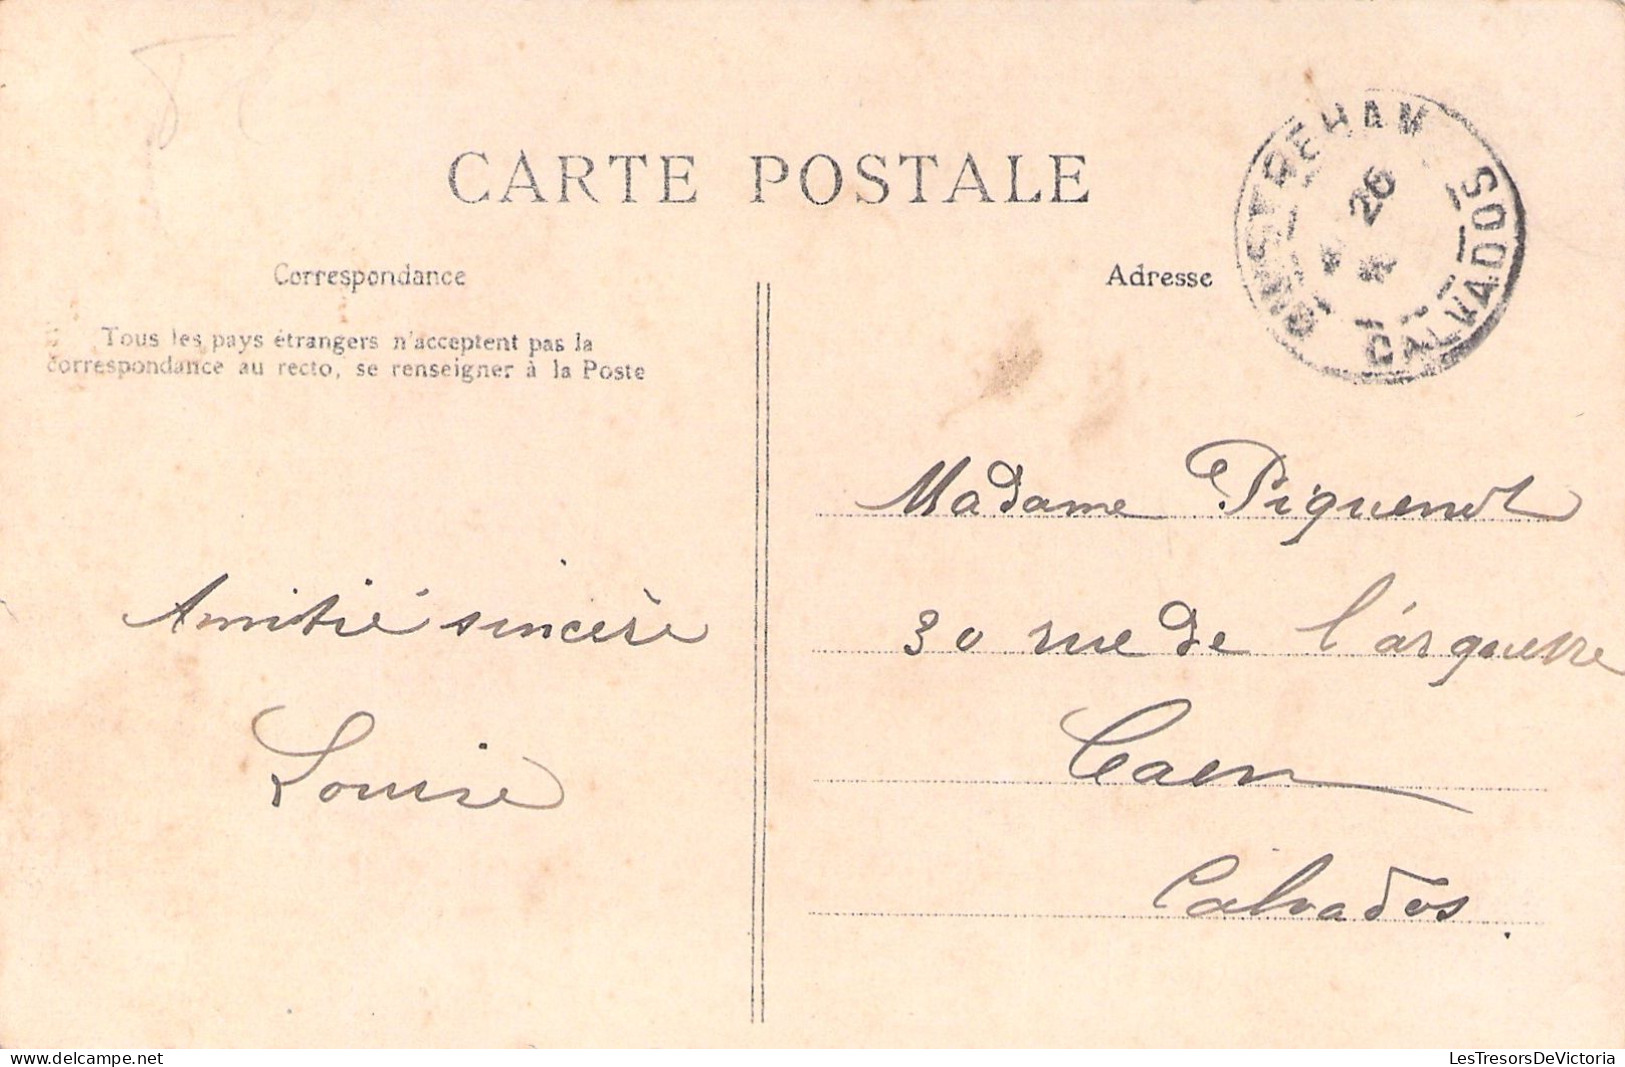 CARTE POSTALE
OUISTREHAM
26
CALVADOS
Correspondance
Adresse
Tous les pays étrangers n'acceptent pas la
correspondance au recto, se renseigner à la Poste
Madame Piquenot
30 rue de l'árquette
Caen
Calvados.
Amitié sincère
Louise
delcampe.net
LesTresorsDeVictoria